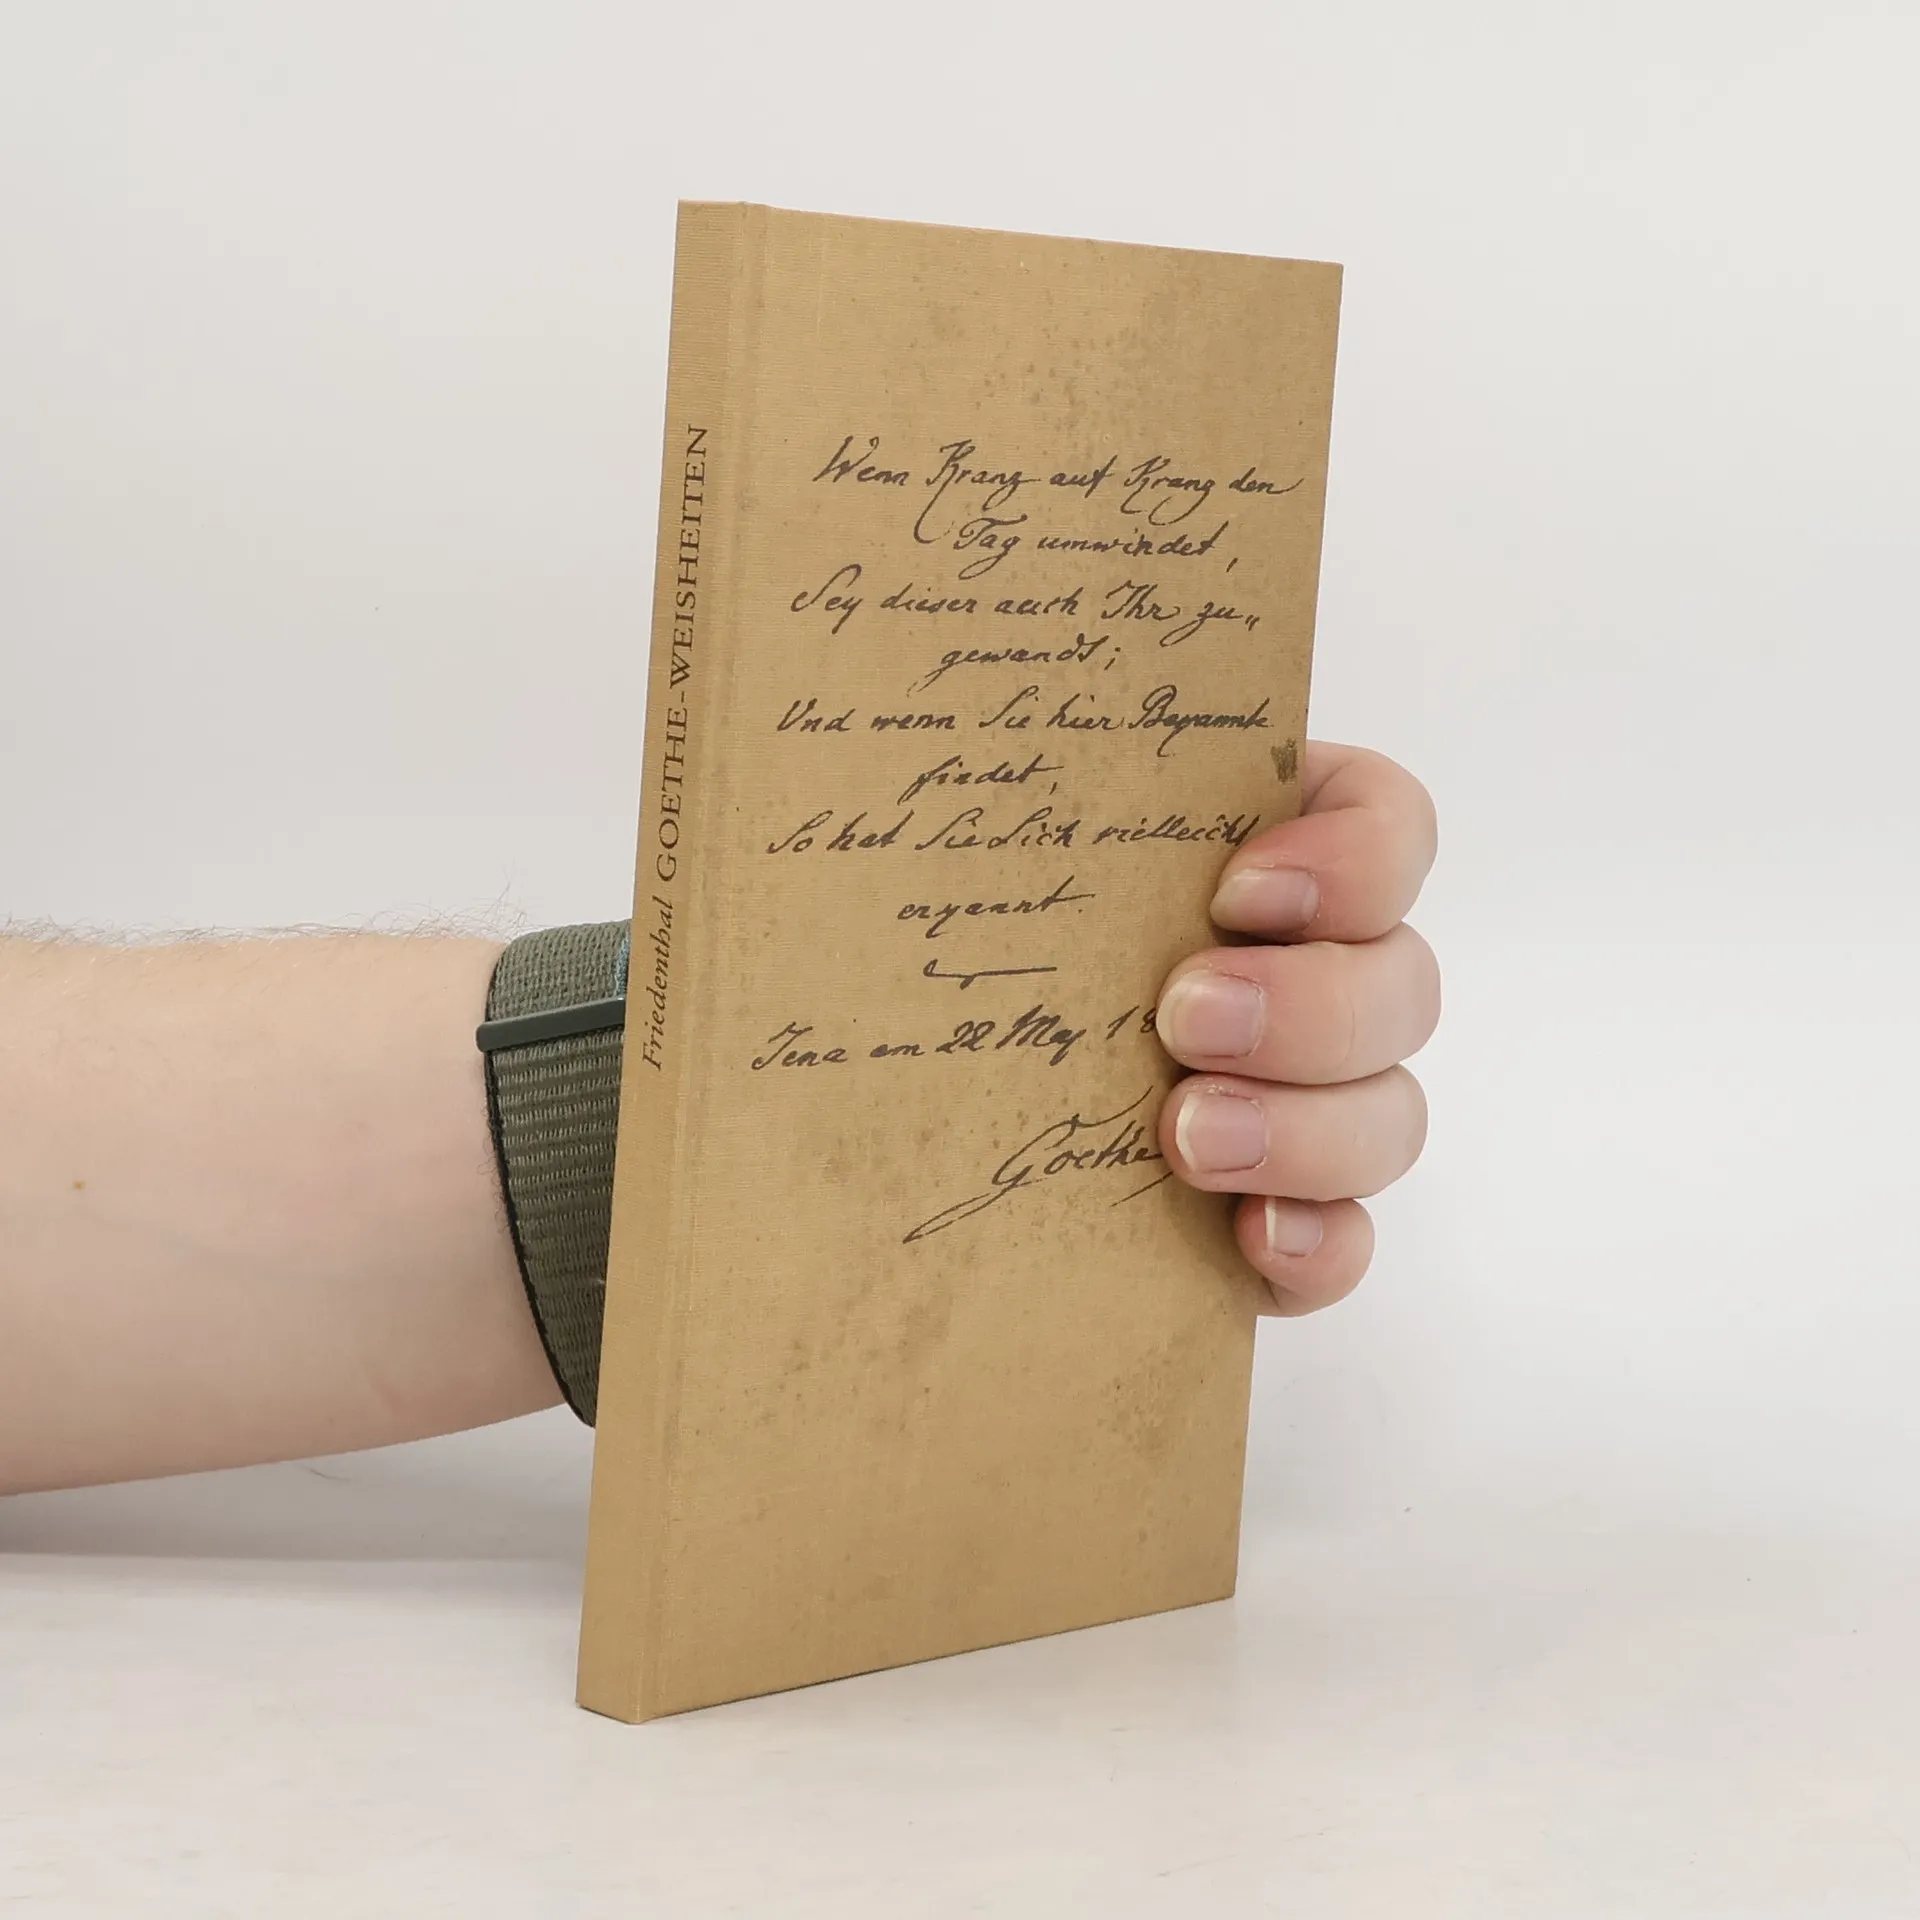 Friedenthal GOETHE-WEISHEITEN
Wenn Kranz auf Kranz den
Tag umwindet,
Sey dieser auch Ihr zu„
gewandt;
Und wenn Sie hier Bekannte
findet,
So hat Sie Sich vielleicht
erkannt.
Jena am 22 May 18
Goethe